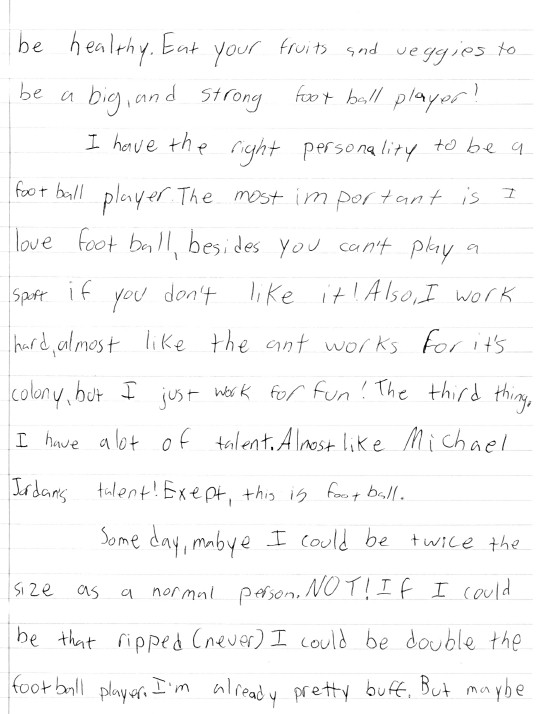 be healthy. Eat your fruits and veggies to
be a big, and strong foot ball player!
I have the right personality to be a
foot ball player. The most important is I
love foot ball, besides you can't play a
sport if you don't like it! Also, I work
hard, almost like the ant works for it's
colony, but I just work for fun! The third thing,
I have alot of talent. Almost like Michael
Jordans talent! Exept, this is foot ball.
Some day, mabye I could be twice the
size as a normal person. NOT! If I could
be that ripped (never) I could be double the
foot ball player. I'm already pretty buff. But maybe